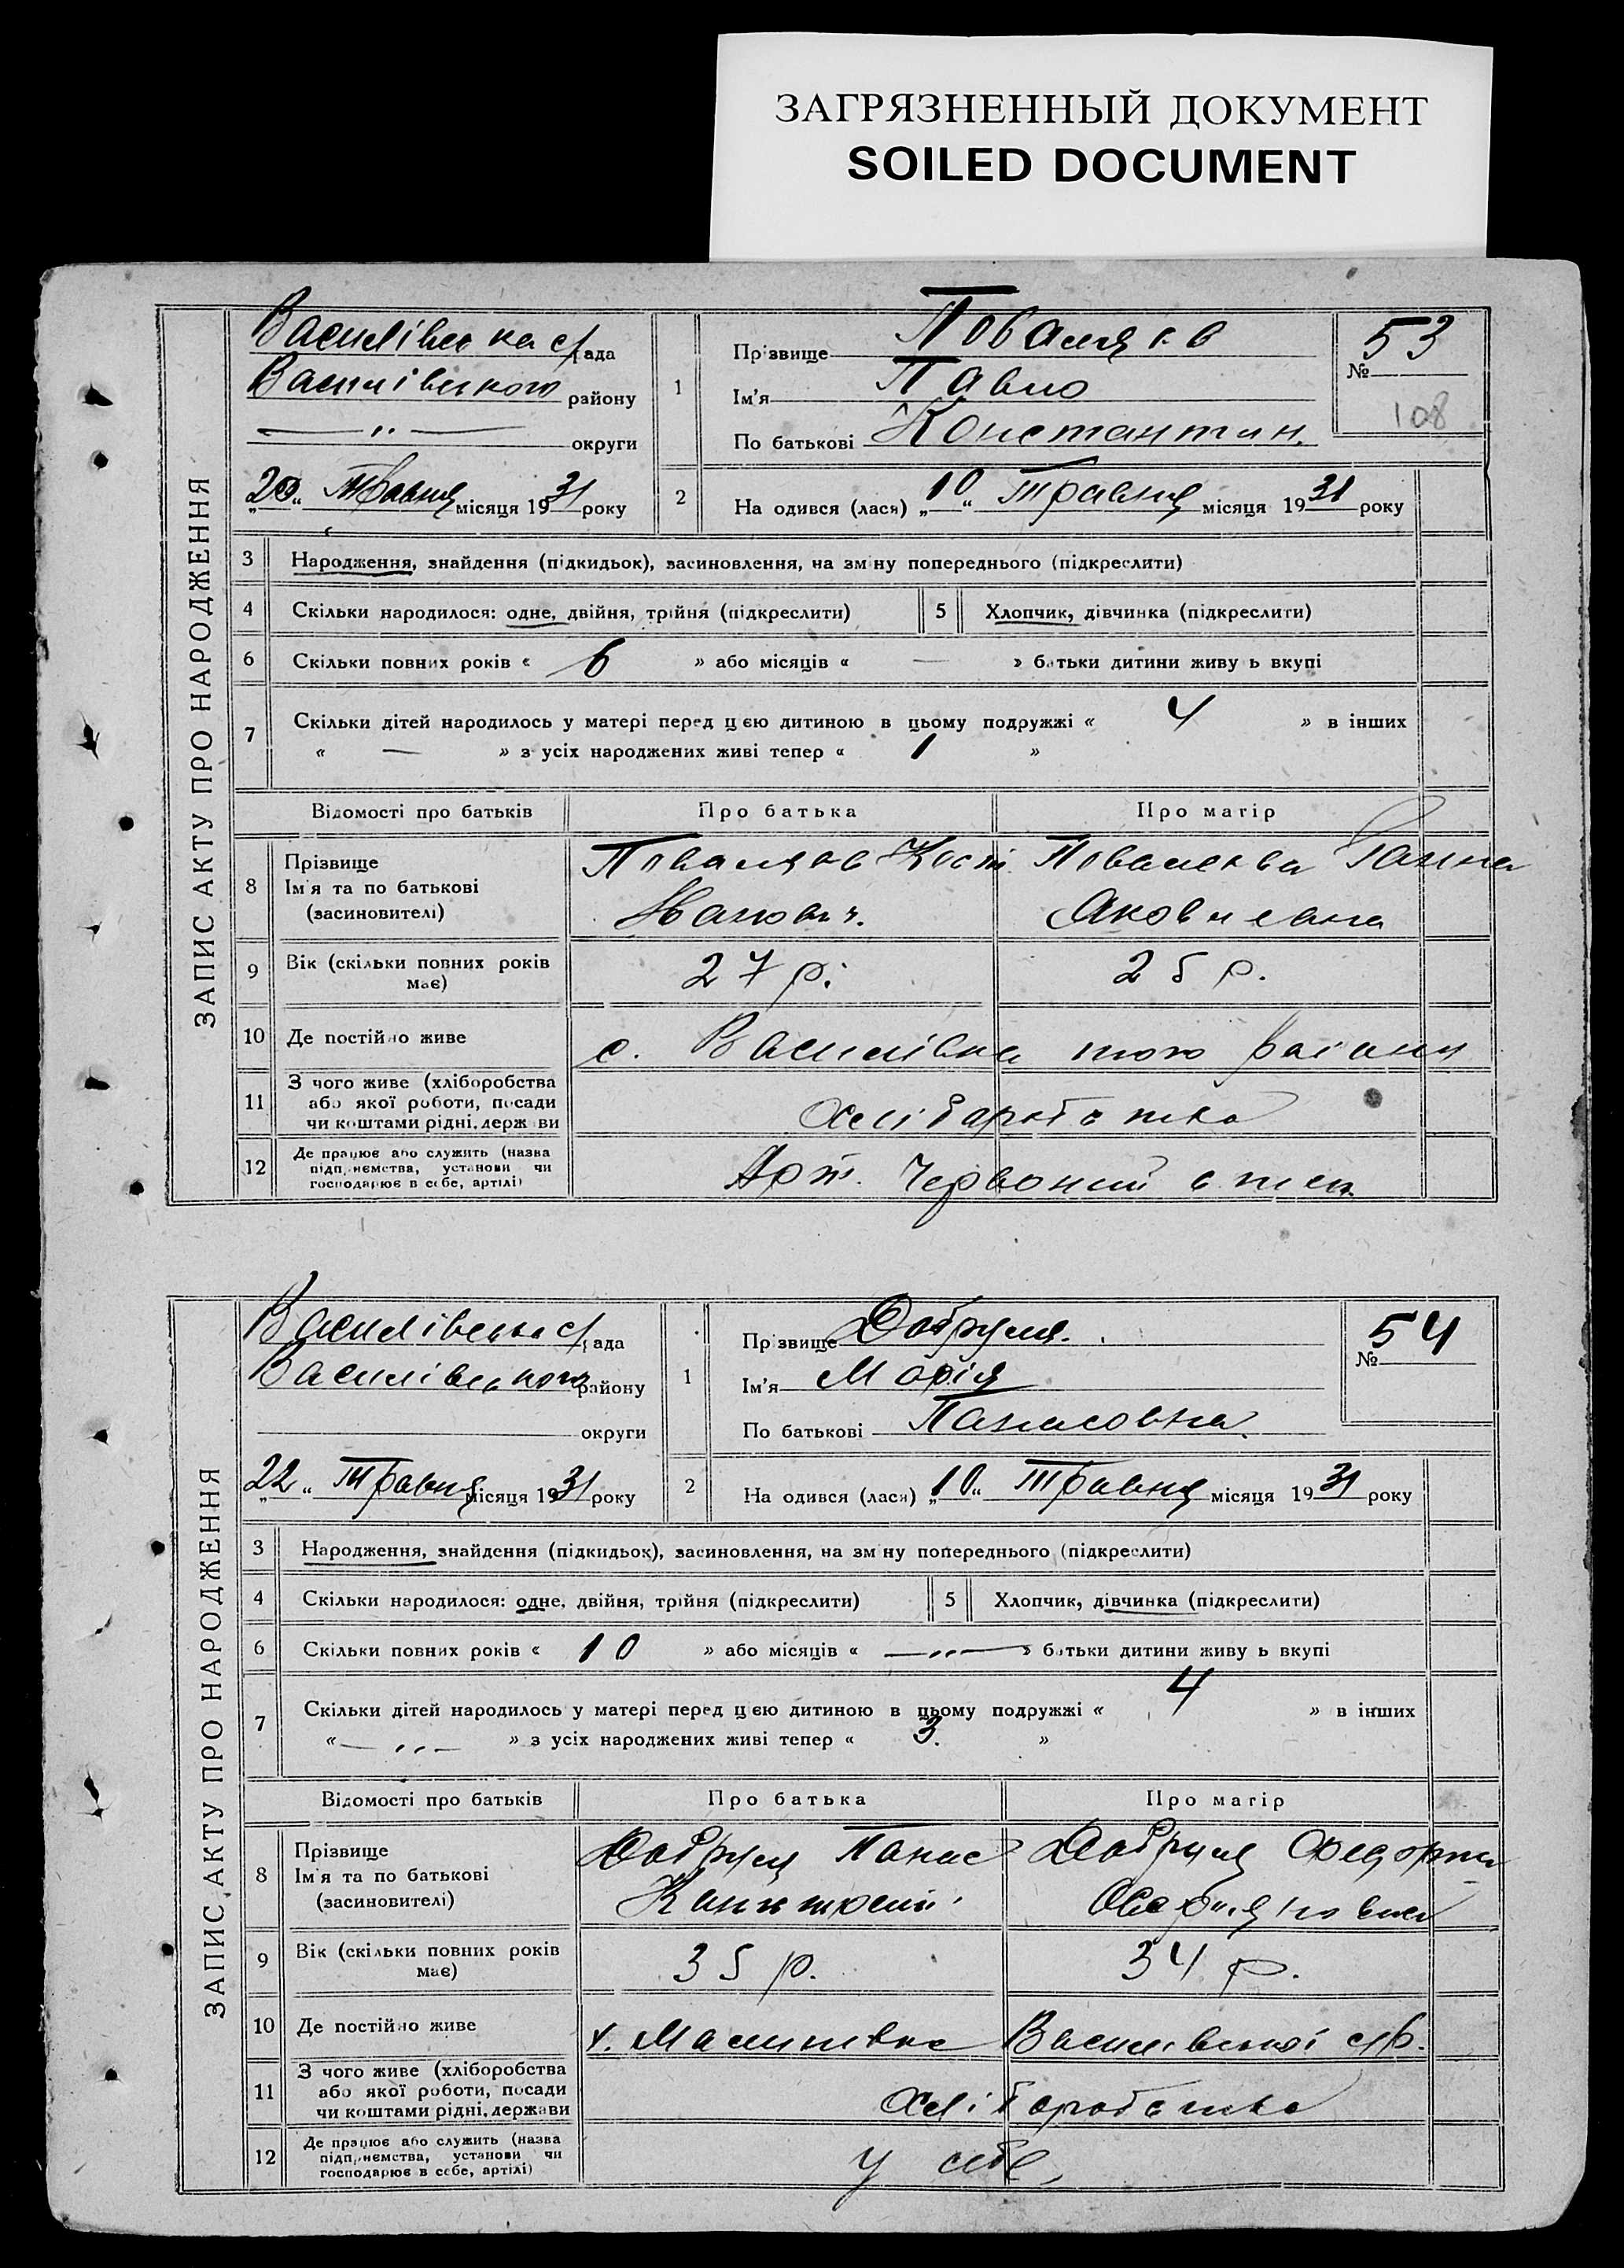 ЗАГРЯЗНЕННЫЙ ДОКУМЕНТ
SOILED DOCUMENT
ЗАПИС АКТУ ПРО НАРОДЖЕННЯ
Василівська с/рада
Василівського району
— „ — округи
„20“ Травня місяця 1931 року
1
Прізвище Поваляєв
Ім'я Павло
По батькові Константин.
№ 53
108
2
На одився (лася) „10“ Травня місяця 1931 року
3 Народження, знайдення (підкидьок), засиновлення, на зміну попереднього (підкреслити)
4 Скільки народилося: одне, двійня, трійня (підкреслити) 5 Хлопчик, дівчинка (підкреслити)
6 Скільки повних років « 6 » або місяців « — » батьки дитини живу ь вкупі
7 Скільки дітей народилось у матері перед цією дитиною в цьому подружжі « 4 » в інших
« — » з усіх народжених живі тепер « 1 »
Відомості про батьків Про батька Про матір
8 Прізвище
Ім'я та по батькові
(засиновителі)
Кост. Ганна
Іванович. Яковлевна
9 Вік (скільки повних років має) 27 р. 25 р.
10 Де постійно живе с. Василівка того району
11 З чого живе (хліборобства
або якої роботи, посади
чи коштами рідні, держави
Хліборобство
12 Де працює або служить (назва
підприємства, установи чи
господарює в себе, артілі)
Арт. Червоний степ
ЗАПИС АКТУ ПРО НАРОДЖЕННЯ
Василівська с/рада
Василівського району
округи
„22“ Травня місяця 1931 року
1
Прізвище Добруля.
Ім'я Марія
По батькові Панасовна.
№ 54
2
На одився (лася) „10“ Травня місяця 1931 року
3 Народження, знайдення (підкидьок), засиновлення, на зміну попереднього (підкреслити)
4 Скільки народилося: одне, двійня, трійня (підкреслити) 5 Хлопчик, дівчинка (підкреслити)
6 Скільки повних років « 10 » або місяців « — „ — » батьки дитини живу ь вкупі
7 Скільки дітей народилось у матері перед цією дитиною в цьому подружжі « 4 » в інших
« — „ — » з усіх народжених живі тепер « 3. »
Відомості про батьків Про батька Про матір
8 Прізвище
Ім'я та по батькові
(засиновителі)
Добруля Панас Добруля
9 Вік (скільки повних років має) 35 р. 34 р.
10 Де постійно живе х. Василівської с/р.
11 З чого живе (хліборобства
або якої роботи, посади
чи коштами рідні, держави
Хліборобство
12 Де працює або служить (назва
підприємства, установи чи
господарює в себе, артілі)
У себе